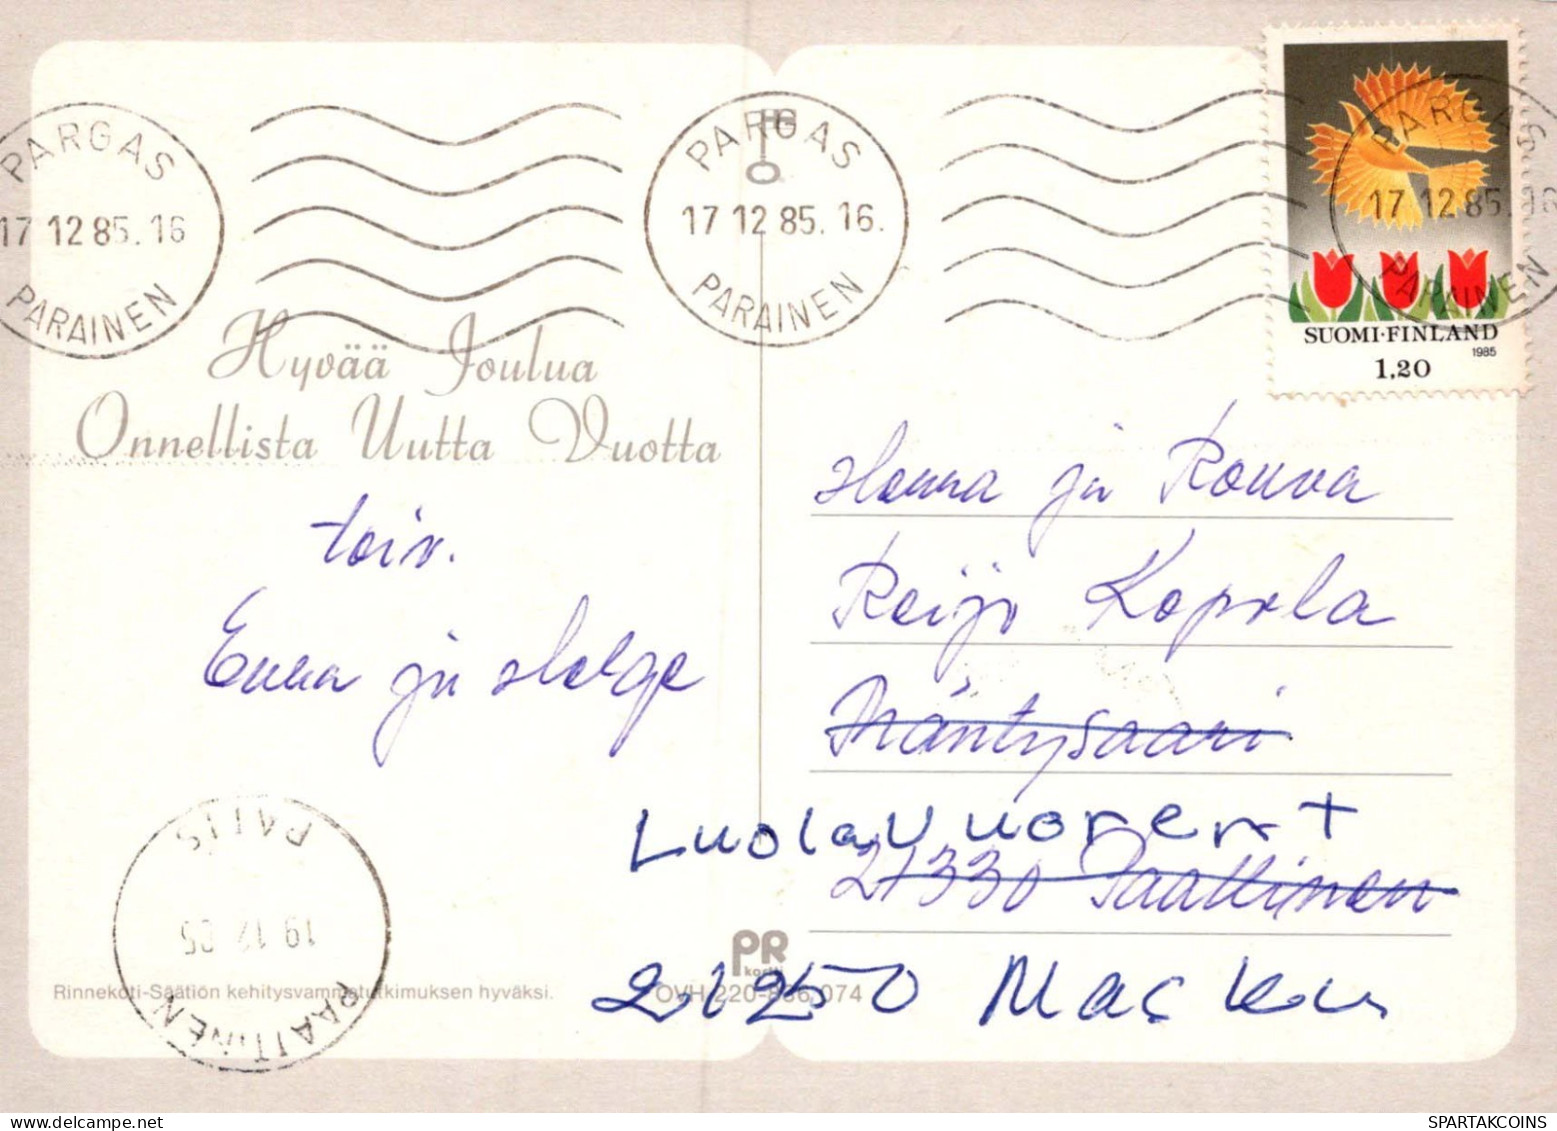 PARGAS
17 12 85. 16
PARAINEN
PARGAS
17 12 85. 16.
PARAINEN
PARGAS
17 12 85. 16
PARAINEN
SUOMI·FINLAND
1985
1,20
Hyvää Joulua
Onnellista Uutta Vuotta
toiv.
Enna ja Helge
Herra ja Rouva
Reijo Kopola
Mäntysaari
Luolavuorent
21330 Paattinen
21250 Masku
PATTIS
19 12 85
PAATTINEN
PR
kortti
Rinnekoti-Säätiön kehitysvammatutkimuksen hyväksi.
OVH 220-836/074
SPARTAKCOINS